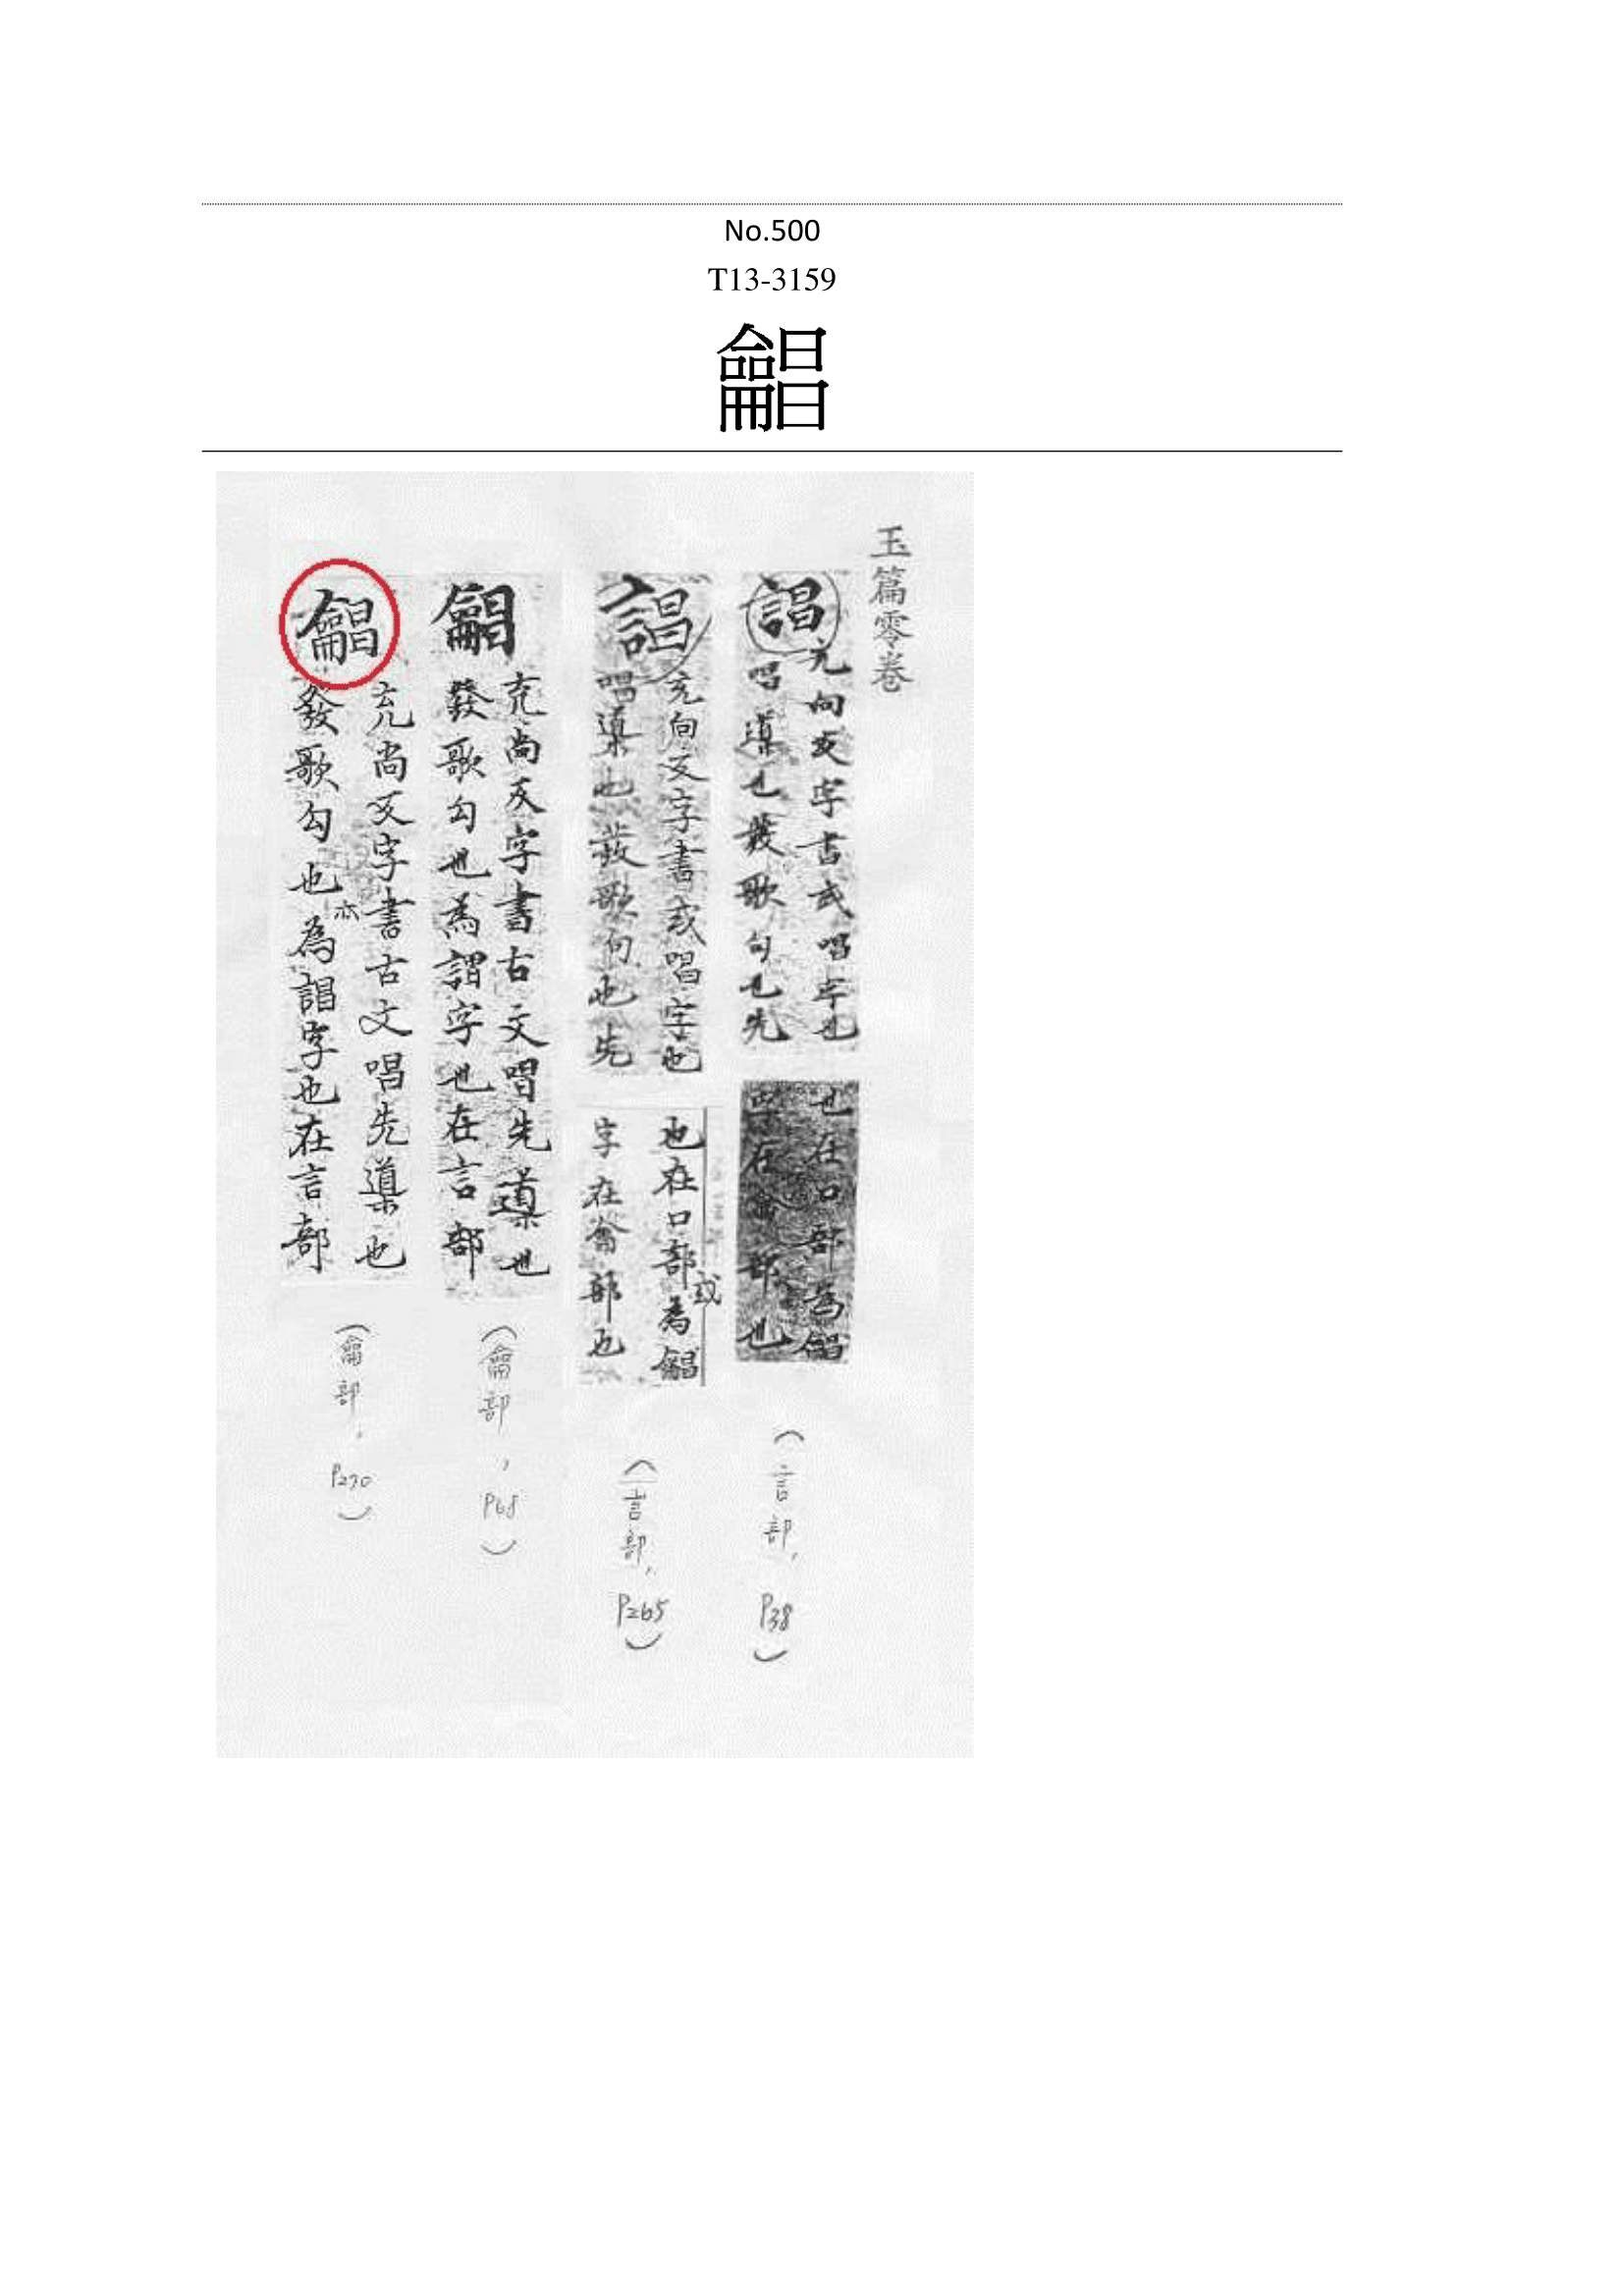 No.500
T13-3159
⿰龠昌
玉篇零卷
誯
充向反字書或唱字也
唱導也發歌句也先
也在口部為⿰龠昌
字在龠部也
（言部，P38）
誯
充向反字書或唱字也
唱導也發歌句也先
也在口部或為⿰龠昌
字在龠部也
（言部，P265）
⿰龠昌
充尚反字書古文唱先導也
發歌勾也為謂字也在言部
（龠部，P68）
⿰龠昌
充尚反字書古文唱先導也
發歌勾也亦為誯字也在言部
（龠部，P270）